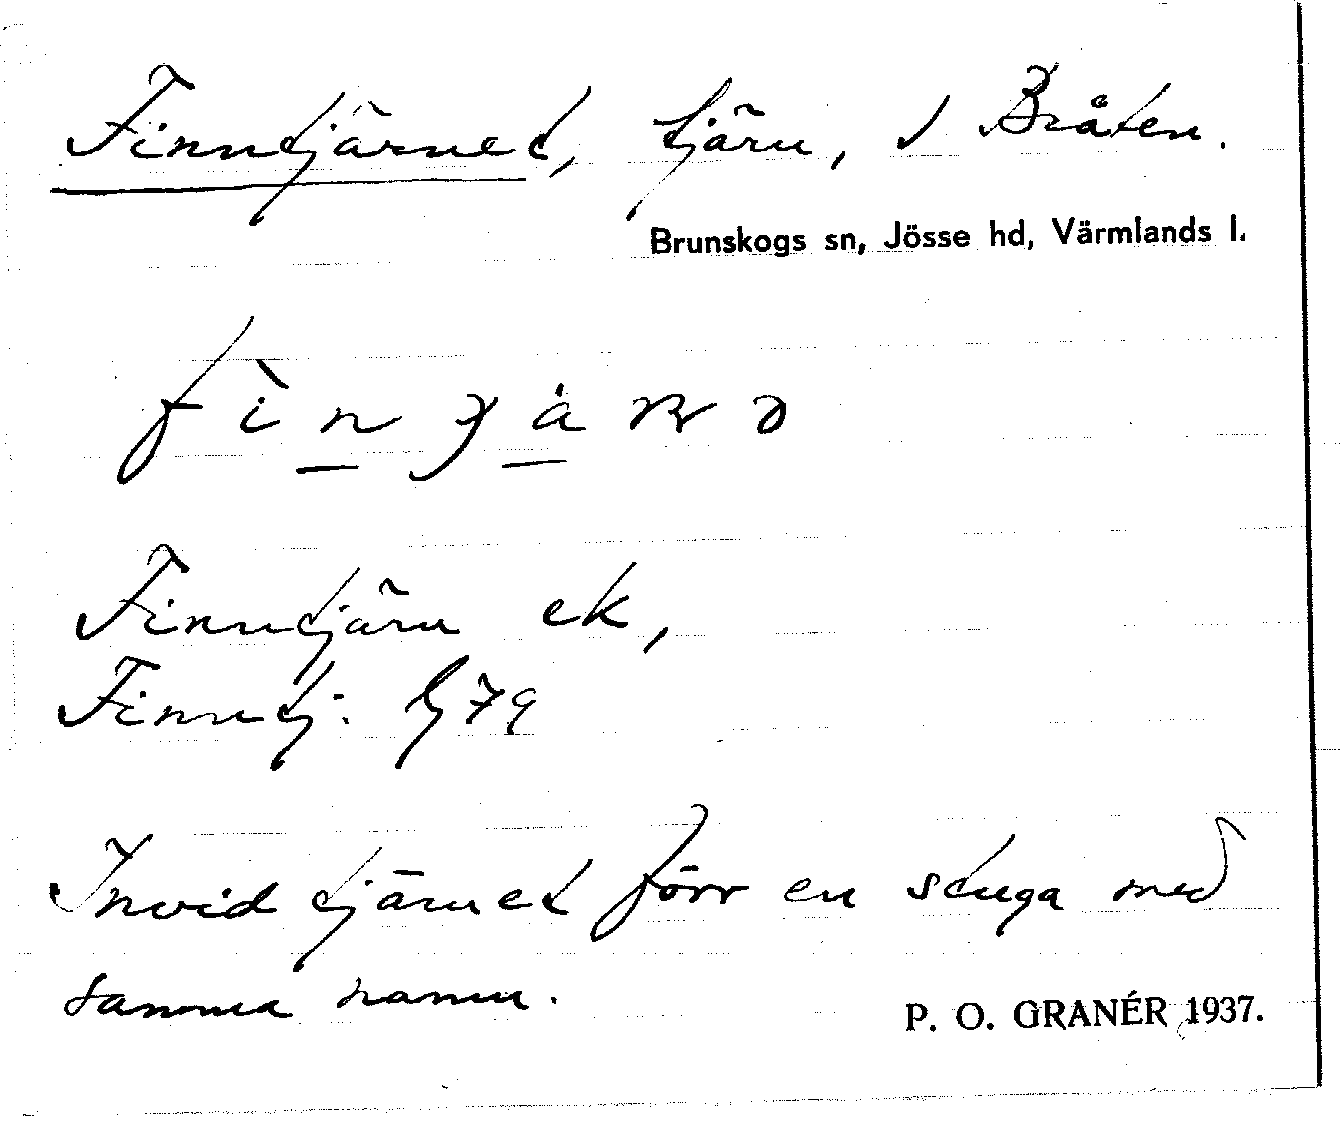 Finntjärnet, tjärn, i Bråten.
Brunskogs sn, Jösse hd, Värmlands l.
Finntjärn ek,
Finntj: G 79
Invid tjärnet förr en stuga med
samma namn.
P. O. GRANÉR 1937.